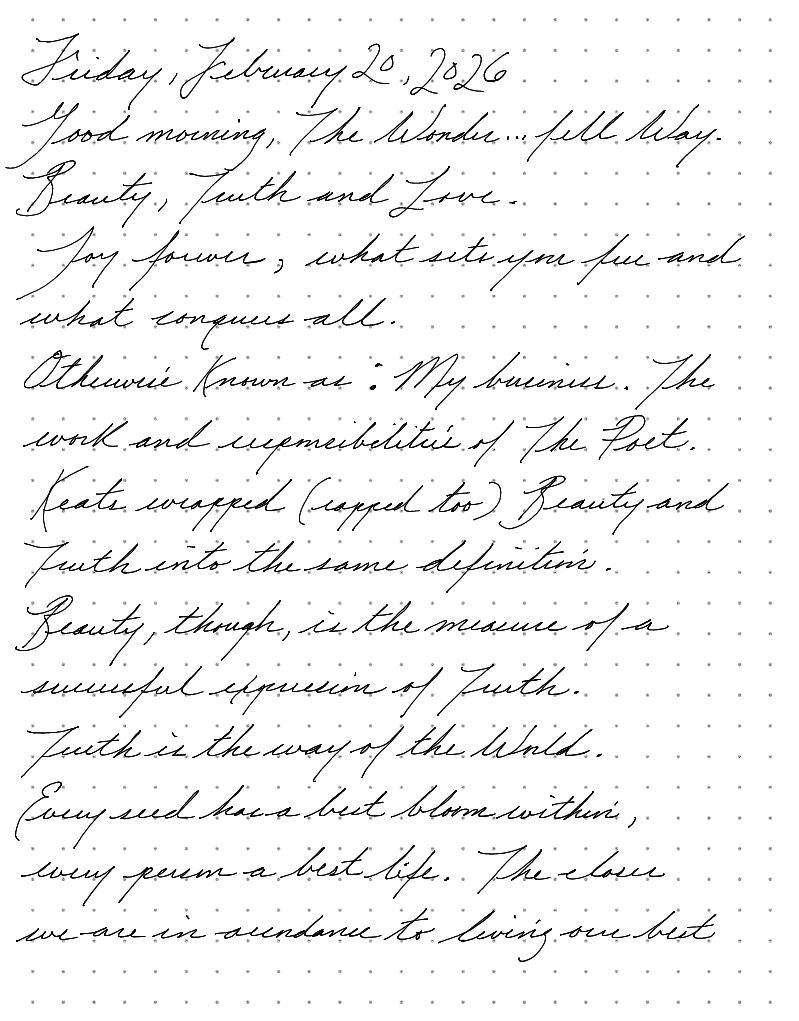 Friday, February 20, 2026
Good morning, The Wonder... fell Way.
Beauty, Truth and Love.
Joy forever, what sets you free and
what conquers all.
Otherwise Known as : My business. The
work and responsibilities of The Poet.
Keats wrapped (rapped too) Beauty and
Truth into the same definition.
Beauty, though, is the measure of a
successful expression of Truth.
Truth is the way of the World.
Every seed has a best bloom within,
every person a best life. The closer
we are in accordance to living our best